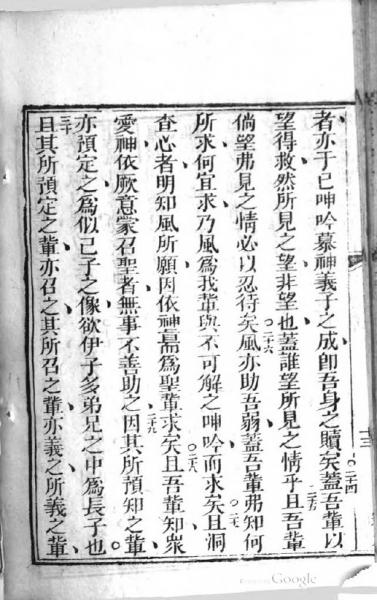 者亦于己呻吟慕神義子之成卽吾身之贖矣蓋吾輩以
二十四
望得救然所見之望非望也蓋誰望所見之情乎且吾輩
二十五
倘望弗見之情必以忍待矣風亦助吾弱蓋吾輩弗知何
二十六
所求何宜求乃風為我輩與不可解之呻吟而求矣且洞
二十七
查心者明知風所願因依神焉為聖輩求矣且吾輩知眾
二十八
愛神依厥意蒙召聖者無事不善助之因其所預知之輩
二十九
亦預定之為似己子之像欲伊子多弟兄之中為長子也
三十
且其所預定之輩亦召之其所召之輩亦義之所義之輩
Google